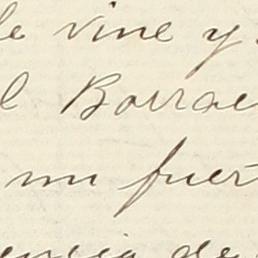 le vine y
l Borrae
un fuer
encia de